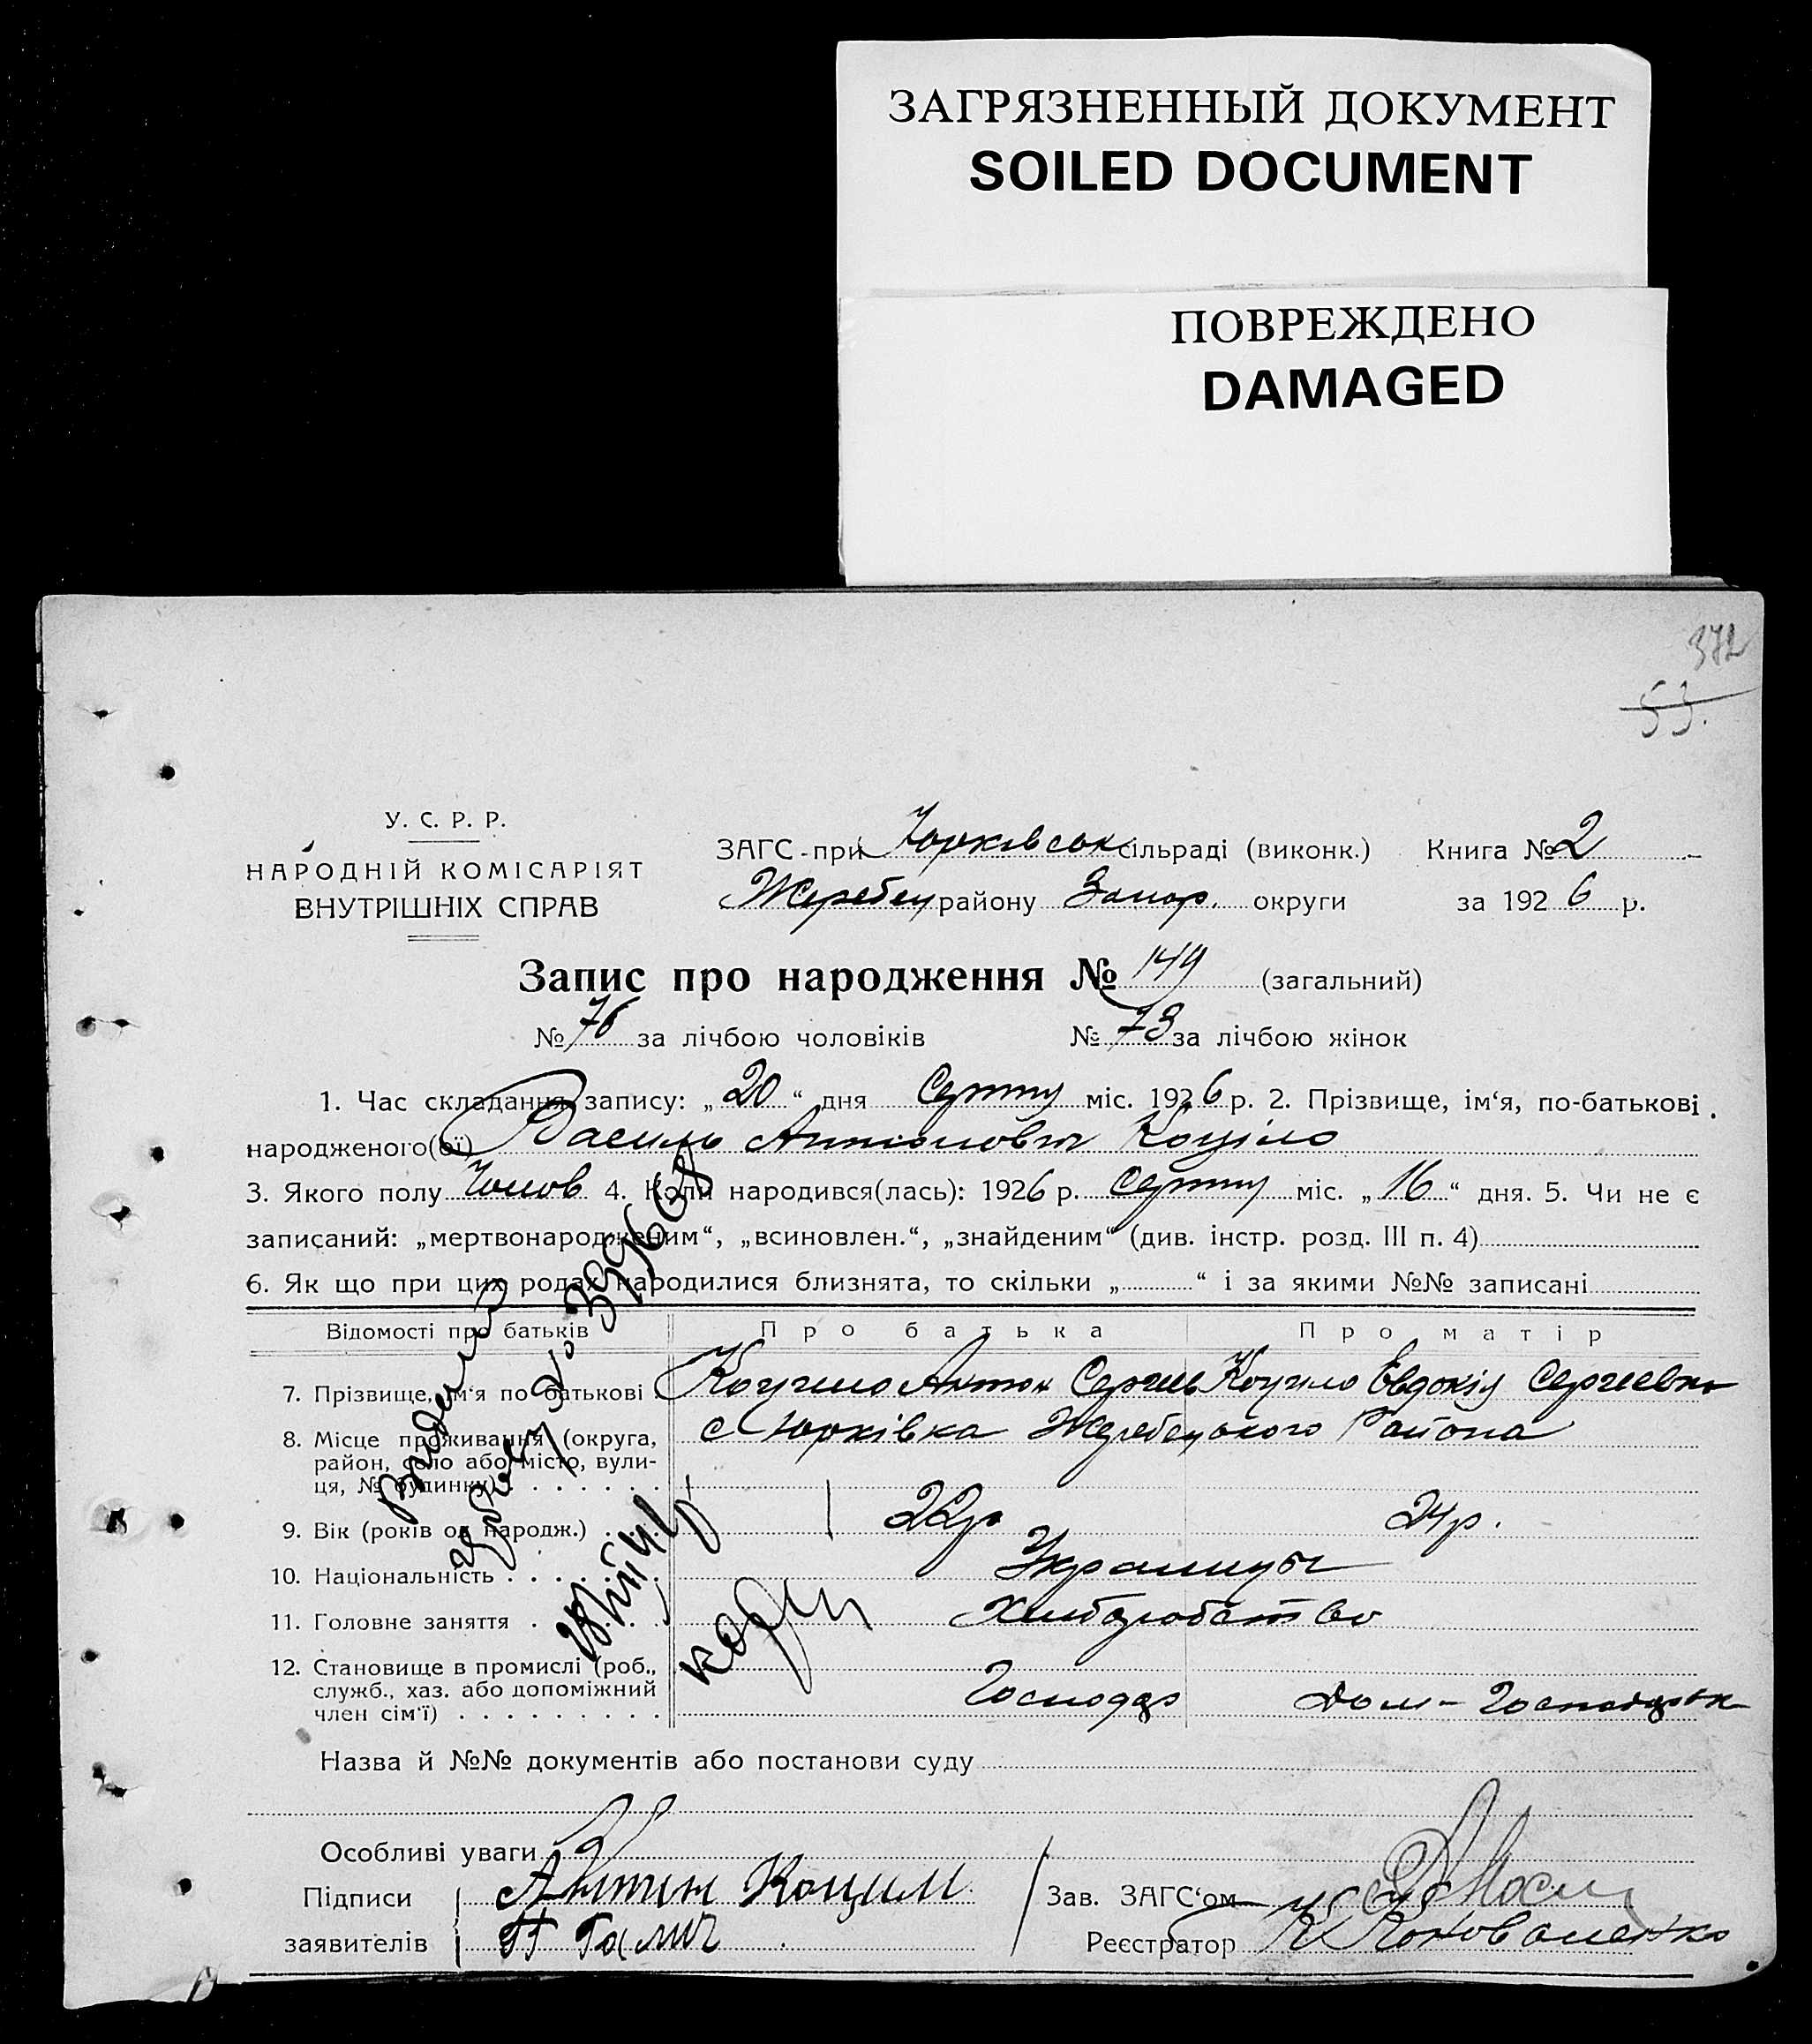 ЗАГРЯЗНЕННЫЙ ДОКУМЕНТ
SOILED DOCUMENT
ПОВРЕЖДЕНО
DAMAGED
372
53.
У. С. Р. Р.
НАРОДНІЙ КОМІСАРІЯТ
ВНУТРІШНІХ СПРАВ
ЗАГС-при Юрківськ сільраді (виконк.) Книга № 2
Жеребец району Запор. округи за 1926 р.
Запис про народження № 149 (загальний)
№ 76 за лічбою чоловіків № 73 за лічбою жінок
1. Час складання запису: „20“ дня Серпня міс. 1926 р. 2. Прізвище, ім‘я, по-батькові
народженого(ої) Василь Антонович Коцило
3. Якого полу Чолов 4. Коли народився(лась): 1926 р. Серпня міс. „16“ дня. 5. Чи не є
записаний: „мертвонародженим“, „всиновлен.“, „знайденим“ (див. інстр. розд. III п. 4)
6. Як що при цих родах народилися близнята, то скільки „ “ і за якими №№ записані
Відомості про батьків Про батька Про матір
7. Прізвище, ім‘я по батькові Коцило Антон Сергіев Коцило Евдокія Сергіевна
8. Місце проживання (округа, с Юрківка Жеребецького Района
район, село або місто, вули-
ця, № будинку)
9. Вік (років од народж.) 22р 24р.
10. Національність Украинцы
11. Головне заняття Хлиборобство
12. Становище в промислі (роб.,
служб., хаз. або допоміжний Господар Дом-Господарка
член сім‘ї)
Назва й №№ документів або постанови суду
Особливі уваги
Підписи Антин Коцил Зав. ЗАГС‘ом
заявителів П Галич Реєстратор К Коноваленко